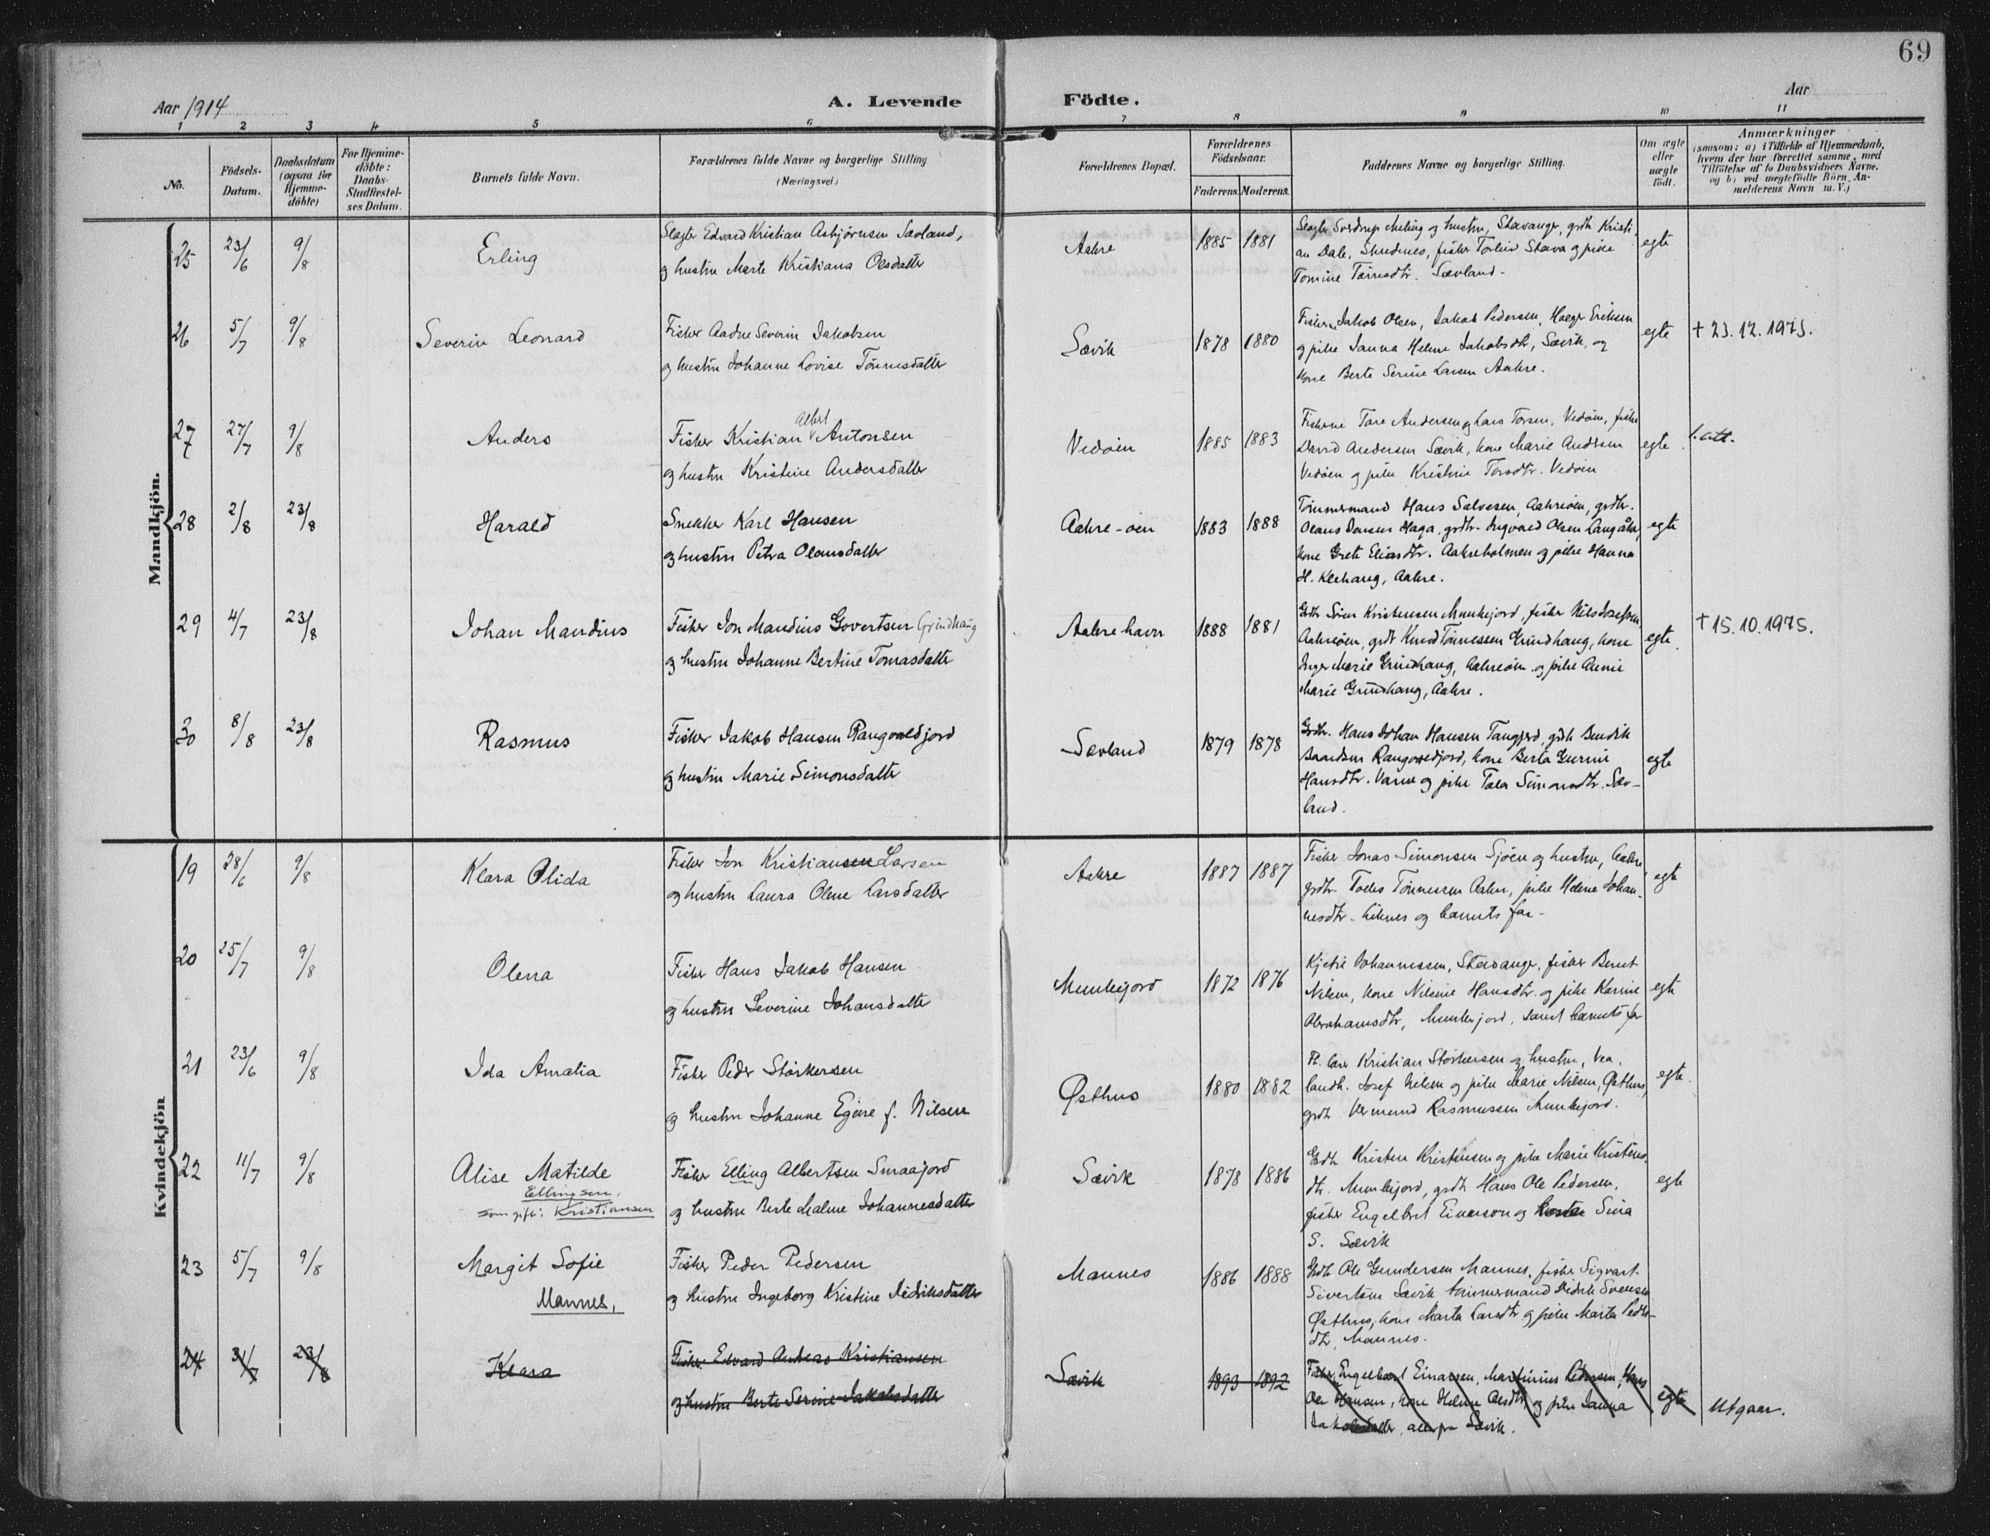 69
Aar 1914
A. Levende Födte.
Aar
1 2 3 4 5 6 7 8 9 10 11
No.
Födsels-
Datum.
Daabsdatum
(ogsaa for
Hjemme-
döbte)
For Hjemme-
döbte:
Daabs-
Stadfæstel-
ses Datum.
Barnets fulde Navn.
Forældrenes fulde Navne og borgerlige Stilling
(Næringsvei.)
Forældrenes Bopæl.
Forældrenes
Födselsaar.
Faderens. Moderens.
Faddernes Navne og borgerlige Stilling.
Om ægte
eller
uægte
födt.
Anmærkninger
(saasom: a) i Tilfælde af Hjemmedaab,
hvem der har forrettet samme, med
Tilföielse af to Daabsvidners Navne,
og b) ved uægtefödte Börn An-
melderens Navn m. V.)
Mandkjön.
25 23/6 9/8 Erling
Slagter Edvard Kristian Asbjørnsen Sævland,
og hustru Marte Kristiana Olsdatter
Aakre 1885 1881
Slagter Sverdrup Meling og hustru, Stavanger, grdr Kristi-
an Dale, Skudenes, fisker Torleiv Stava og pike
Tomine Tørresdtr. Sævland.
egte
26 5/7 9/8 Severin Leonard
Fisker Aadne Severin Jakobsen
og hustru Johanne Lovise Tønnesdatter
Sævik 1878 1880
Fiskerne Jakob Olsen, Jakob Pedersen, Eriksen
og pike Janna Helene Jakobsdtr, Sævik, og
kone Berte Serine Larsen Aakre.
egte
† 23.12.1973.
27 27/7 9/8 Anders
Albert
Fisker Kristian Antonsen
og hustru Kristine Andersdatter
Vedøen 1885 1883
Fiskerne Tore Andersen og Lars Torsen, Vedøen, fisker
David Andersen Sævik, kone Marie Andersen
Vedøen og pike Kristine Torsdtr. Vedøen
egte
28 2/8 23/8 Harald
Snekker Karl Hansen
og hustru Petra Olausdatter
Aakre-øen 1883 1888
Tømmermand Hans Salvesen, Aakreøen, grdbr.
Olaus Jensen Haga, grdbr. Ingvald Olsen Langåker,
kone Grete Eliasdtr. Aakreholmen og pike Hanna
H. Klehaug, Aakre.
egte
29 4/7 23/8 Johan Maudius
Fisker Jon Maudius Govertsen Grindhaug
og hustru Johanne Bertine Tomasdatter
Aakrehavn 1888 1881
Grdbr Sören Kristensen Munkejord, fisker Nils Josefsen,
Aakreøen, grdbr Knud Tønnessen Grindhaug, kone
Inger Marie Grindhaug, Aakreøen og pike Annie
Marie Grindhaug, Aakre.
egte
† 15.10.1975.
30 8/8 23/8 Rasmus
Fisker Jakob Hansen Rangvaldjord
og hustru Marie Simonsdatter
Sævland 1879 1878
Grdbr. Hans Johan Hansen Tangjerd, grdbr Bendik
Baardsen Rangvaldjord, kone Berta Gurine
Hansdtr. Varne og pike Talea Simonsdtr. Sæv-
land.
egte
Kvindekjön
19 28/6 9/8 Klara Olida
Fisker Jon Kristiansen Larsen
og hustru Laura Olene Larsdatter
Aakre 1887 1887
Fisker Jonas Simonsen Sjøen og hustru, Aakre,
grdbr Todes Tönnessen Aakre, pike Helene Johan-
nesdtr. Liknes og barnets far.
egte
20 25/7 9/8 Olena
Fisker Hans Jakob Hansen
og hustru Severine Johansdatter
Munkejord 1872 1876
Kjetil Johannessen, Stavanger, fisker Bernt
Nilsen, kone Nilsine Hansdtr. og pike Karine
Abrahamsdtr, Munkejord, samt barnets far
egte
21 23/6 9/8 Ida Amalia
Fisker Peder Størkersen
og hustru Johanne Egine f. Nilsen
Østhus 1880 1882
Kristian Størkersen og hustru, Vea,
landh. Josef Nilsen og pike Marie Nilsen, Østhus,
grdbr Vermund Rasmussen Munkejord.
egte
22 11/7 9/8 Alise Matilde
Ellingsen,
som gift: Kristiansen
Fisker Elling Albertsen Smaajord
og hustru Berte Malene Johannesdatter
Sævik 1878 1886
Grdbr Kristen Kristensen og pike Marie Kristens-
dtr. Munkejord, grdbr Hans Ole Pedersen,
fisker Engelbret Einarson og kone Sina
S. Sævik
egte
23 5/7 9/8 Margit Sofie
Mannes,
Fisker Peder Pedersen
og hustru Ingeborg Kristine Didriksdatter
Mannes 1886 1888
Grdbr Ole Gundersen Mannes, fisker Sigvart
Sivertsen Sævik tømmermand Didrik Svensen
Østhus, kone Marta Larsdtr og pike Marta Peders-
dtr, Mannes.
24 31/7 23/8 Klara
Fisker Edvard Anders Kristiansen
og hustru Berte Serine Jakobsdatter
Sævik 1893 1892
Fisker Engelbret Einarsen, Martinius Pedersen, Hans
Ole Hansen, kone Helene Olsdtr, og pike Janna
Jakobsdatter, alle fra Sævik.
egte
Utgaar.